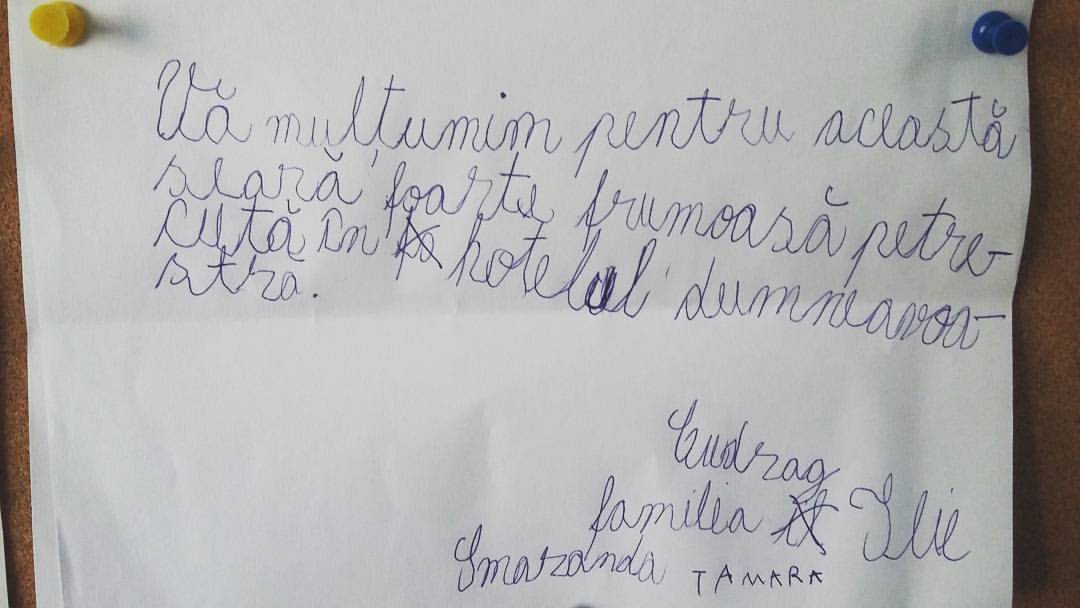 Vă mulțumim pentru această
seară foarte frumoasă petre-
cută în hotelul dumneavoa-
stră.
Cu drag
familia Ilie
Smaranda TAMARA